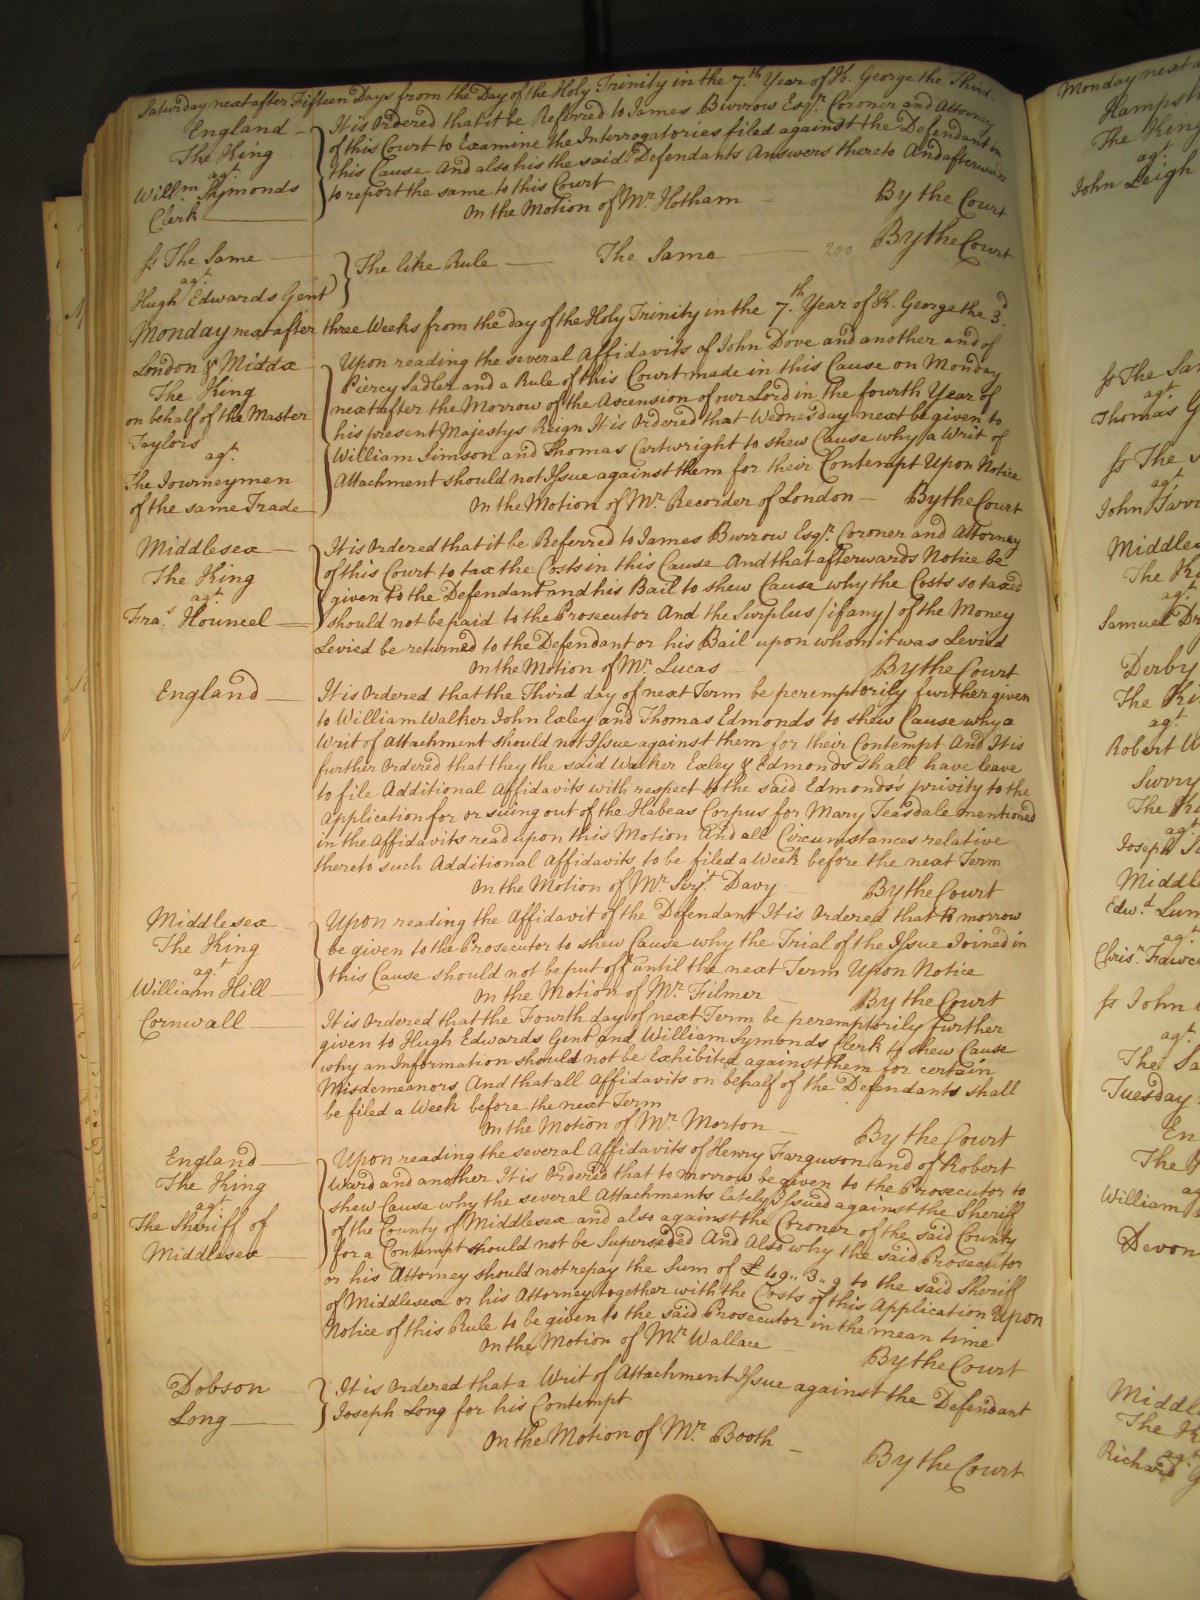 Saturday next after Fifteen Days from the Day of the Holy Trinity in the 7.th Year of K. George the Third.
England
The King
agt.
Willm. Symonds
Clerk
It is Ordered that it be Referred to James Burrow Esqr. Coroner and Attorney
of this Court to Examine the Interrogatories filed against the Defendant in
this Cause And also his the said Defendants Answers thereto And afterwards
to report the same to this Court
On the Motion of Mr. Hotham
By the Court
ss The Same
agt.
Hugh Edwards Gent
The like Rule
The Same
200
By the Court
Monday next after three Weeks from the day of the Holy Trinity in the 7.th Year of K. George the 3d.
London & Middx
The King
on behalf of the Master
Taylors
agt.
The Journeymen
of the same Trade
Upon reading the several Affidavits of John Dove and another and of
Piercy Sadler and a Rule of this Court made in this Cause on Monday
next after the Morrow of the Ascension of our Lord in the fourth Year of
his present Majestys Reign It is Ordered that Wednesday next be given to
William Simson and Thomas Cartwright to shew Cause why a Writ of
Attachment should not Issue against them for their Contempt Upon Notice
On the Motion of Mr. Recorder of London
By the Court
Middlesex
The King
agt.
Fras. Houncel
It is Ordered that it be Referred to James Burrow Esqr. Coroner and Attorney
of this Court to tax the Costs in this Cause And that afterwards Notice be
given to the Defendant and his Bail to shew Cause why the Costs so taxed
should not be paid to the Prosecutor And the Surplus (if any) of the Money
Levied be returned to the Defendant or his Bail upon whom it was Levied
On the Motion of Mr. Lucas
By the Court
England
It is Ordered that the Third day of next Term be peremptorily further given
to William Walker John Exley and Thomas Edmonds to shew Cause why a
Writ of Attachment should not Issue against them for their Contempt And It is
further Ordered that they the said Walker Exley & Edmonds shall have leave
to file Additional Affidavits with respect to the said Edmonds's privity to the
Application for or suing out of the Habeas Corpus for Mary Teasdale mentioned
in the Affidavits read upon this Motion And all Circumstances relative
thereto such Additional Affidavits to be filed a Week before the next Term
On the Motion of Mr. Serjt. Davy
By the Court
Middlesex
The King
agt.
William Hill
Upon reading the Affidavit of the Defendant It is Ordered that to morrow
be given to the Prosecutor to shew Cause why the Trial of the Issue Joined in
this Cause should not be put off until the next Term Upon Notice
On the Motion of Mr. Filmer
By the Court
Cornwall
It is Ordered that the Fourth day of next Term be peremptorily further
given to Hugh Edwards Gent and William Symonds Clerk to shew Cause
why an Information should not be Exhibited against them for certain
Misdemeanors And that all Affidavits on behalf of the Defendants shall
be filed a Week before the next Term
On the Motion of Mr. Morton
By the Court
England
The King
agt.
The Sheriff of
Middlesex
Upon reading the several Affidavits of Henry Farguson and of Robert
Ward and another It is Ordered that to morrow be given to the Prosecutor to
shew Cause why the several Attachments lately Issued against the Sheriff
of the County of Middlesex and also against the Coroner of the said County
for a Contempt should not be Superseded And Also why the said Prosecutor
or his Attorney should not repay the Sum of £49,, 3,, 9 to the said Sheriff
of Middlesex or his Attorney together with the Costs of this Application Upon
Notice of this Rule to be given to the said Prosecutor in the mean time
On the Motion of Mr. Wallace
By the Court
Dobson
Long
It is Ordered that a Writ of Attachment Issue against the Defendant
Joseph Long for his Contempt
On the Motion of Mr. Booth
By the Court
Monday next
The King
agt.
John Leigh
ss The
agt.
Thomas
ss The
agt.
John
The
agt.
Samuel
Derby
The
agt.
Robert
Surry
The
agt.
Joseph
Edwd.
agt.
Chrisr.
ss John
agt.
The
Tuesday
The
William
Devon
The
agt.
Richard